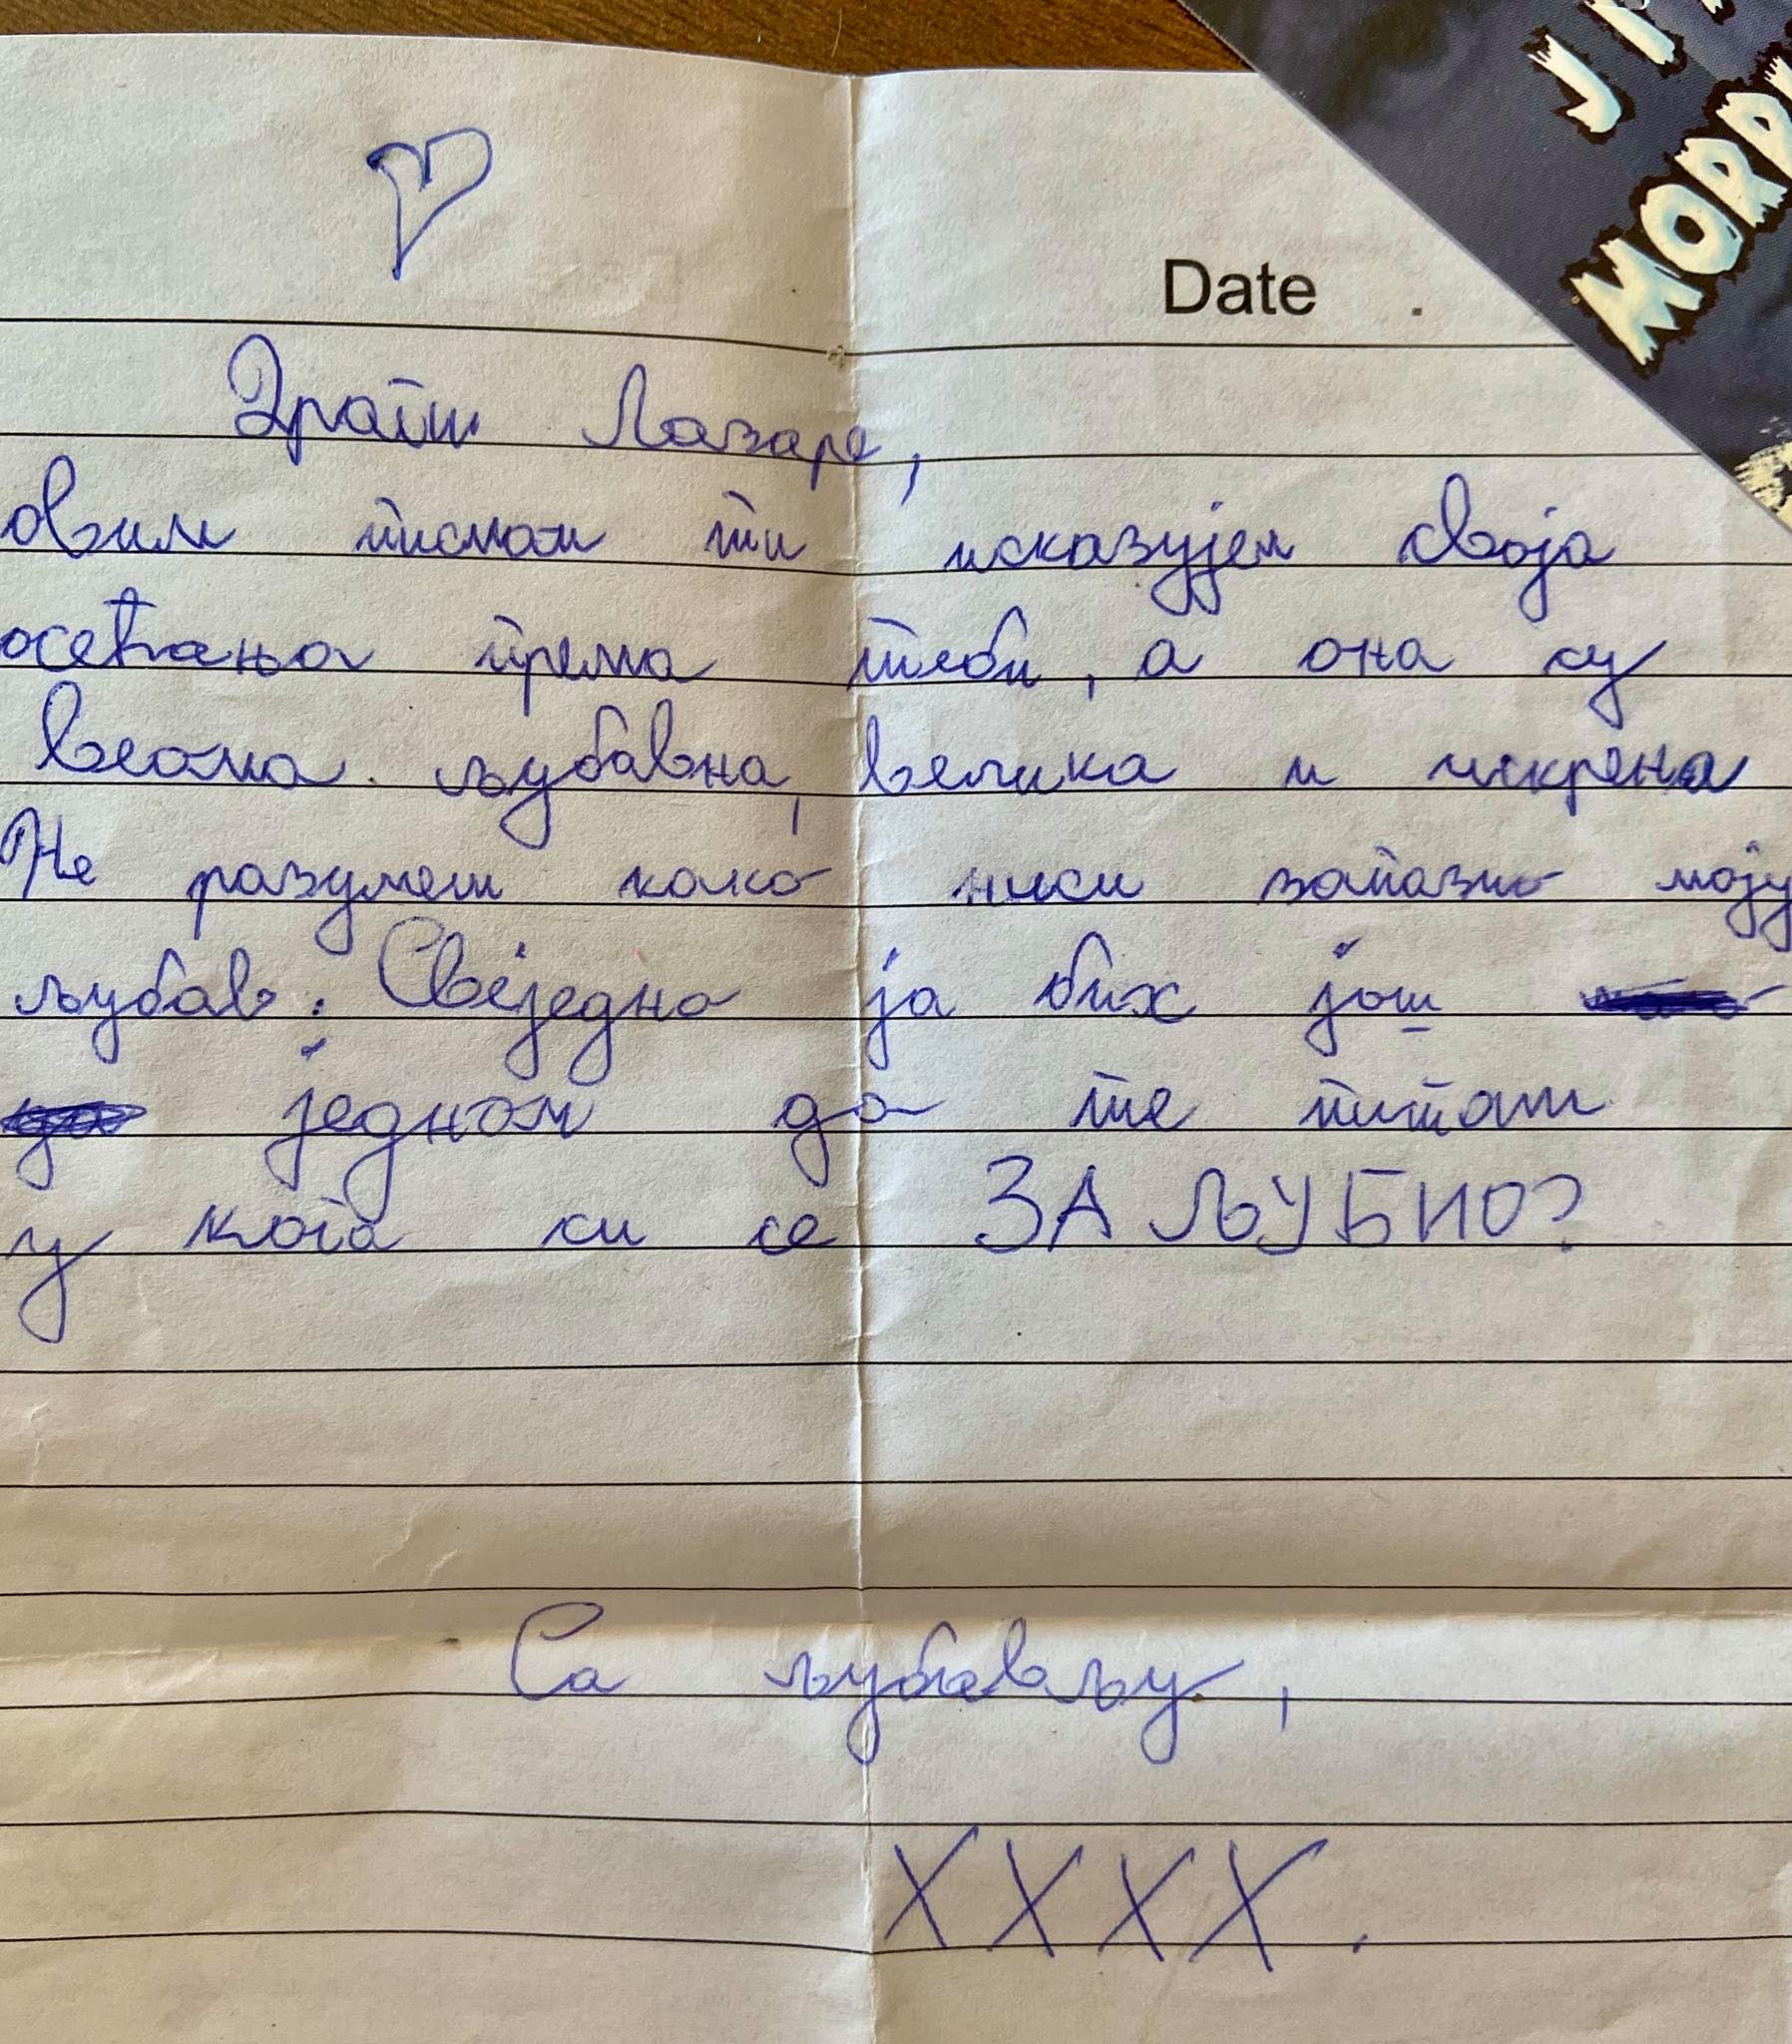 Date .
Драги Лазаре,
овим писмом ти исказујем своја
осећања према теби, а она су
веома љубавна, велика и искрена
Не разумем како ниси запазио моју
љубав. Свеједно ја бих још
једном да те питам
у кога си се ЗАЉУБИО?
Са љубављу,
XXXX.